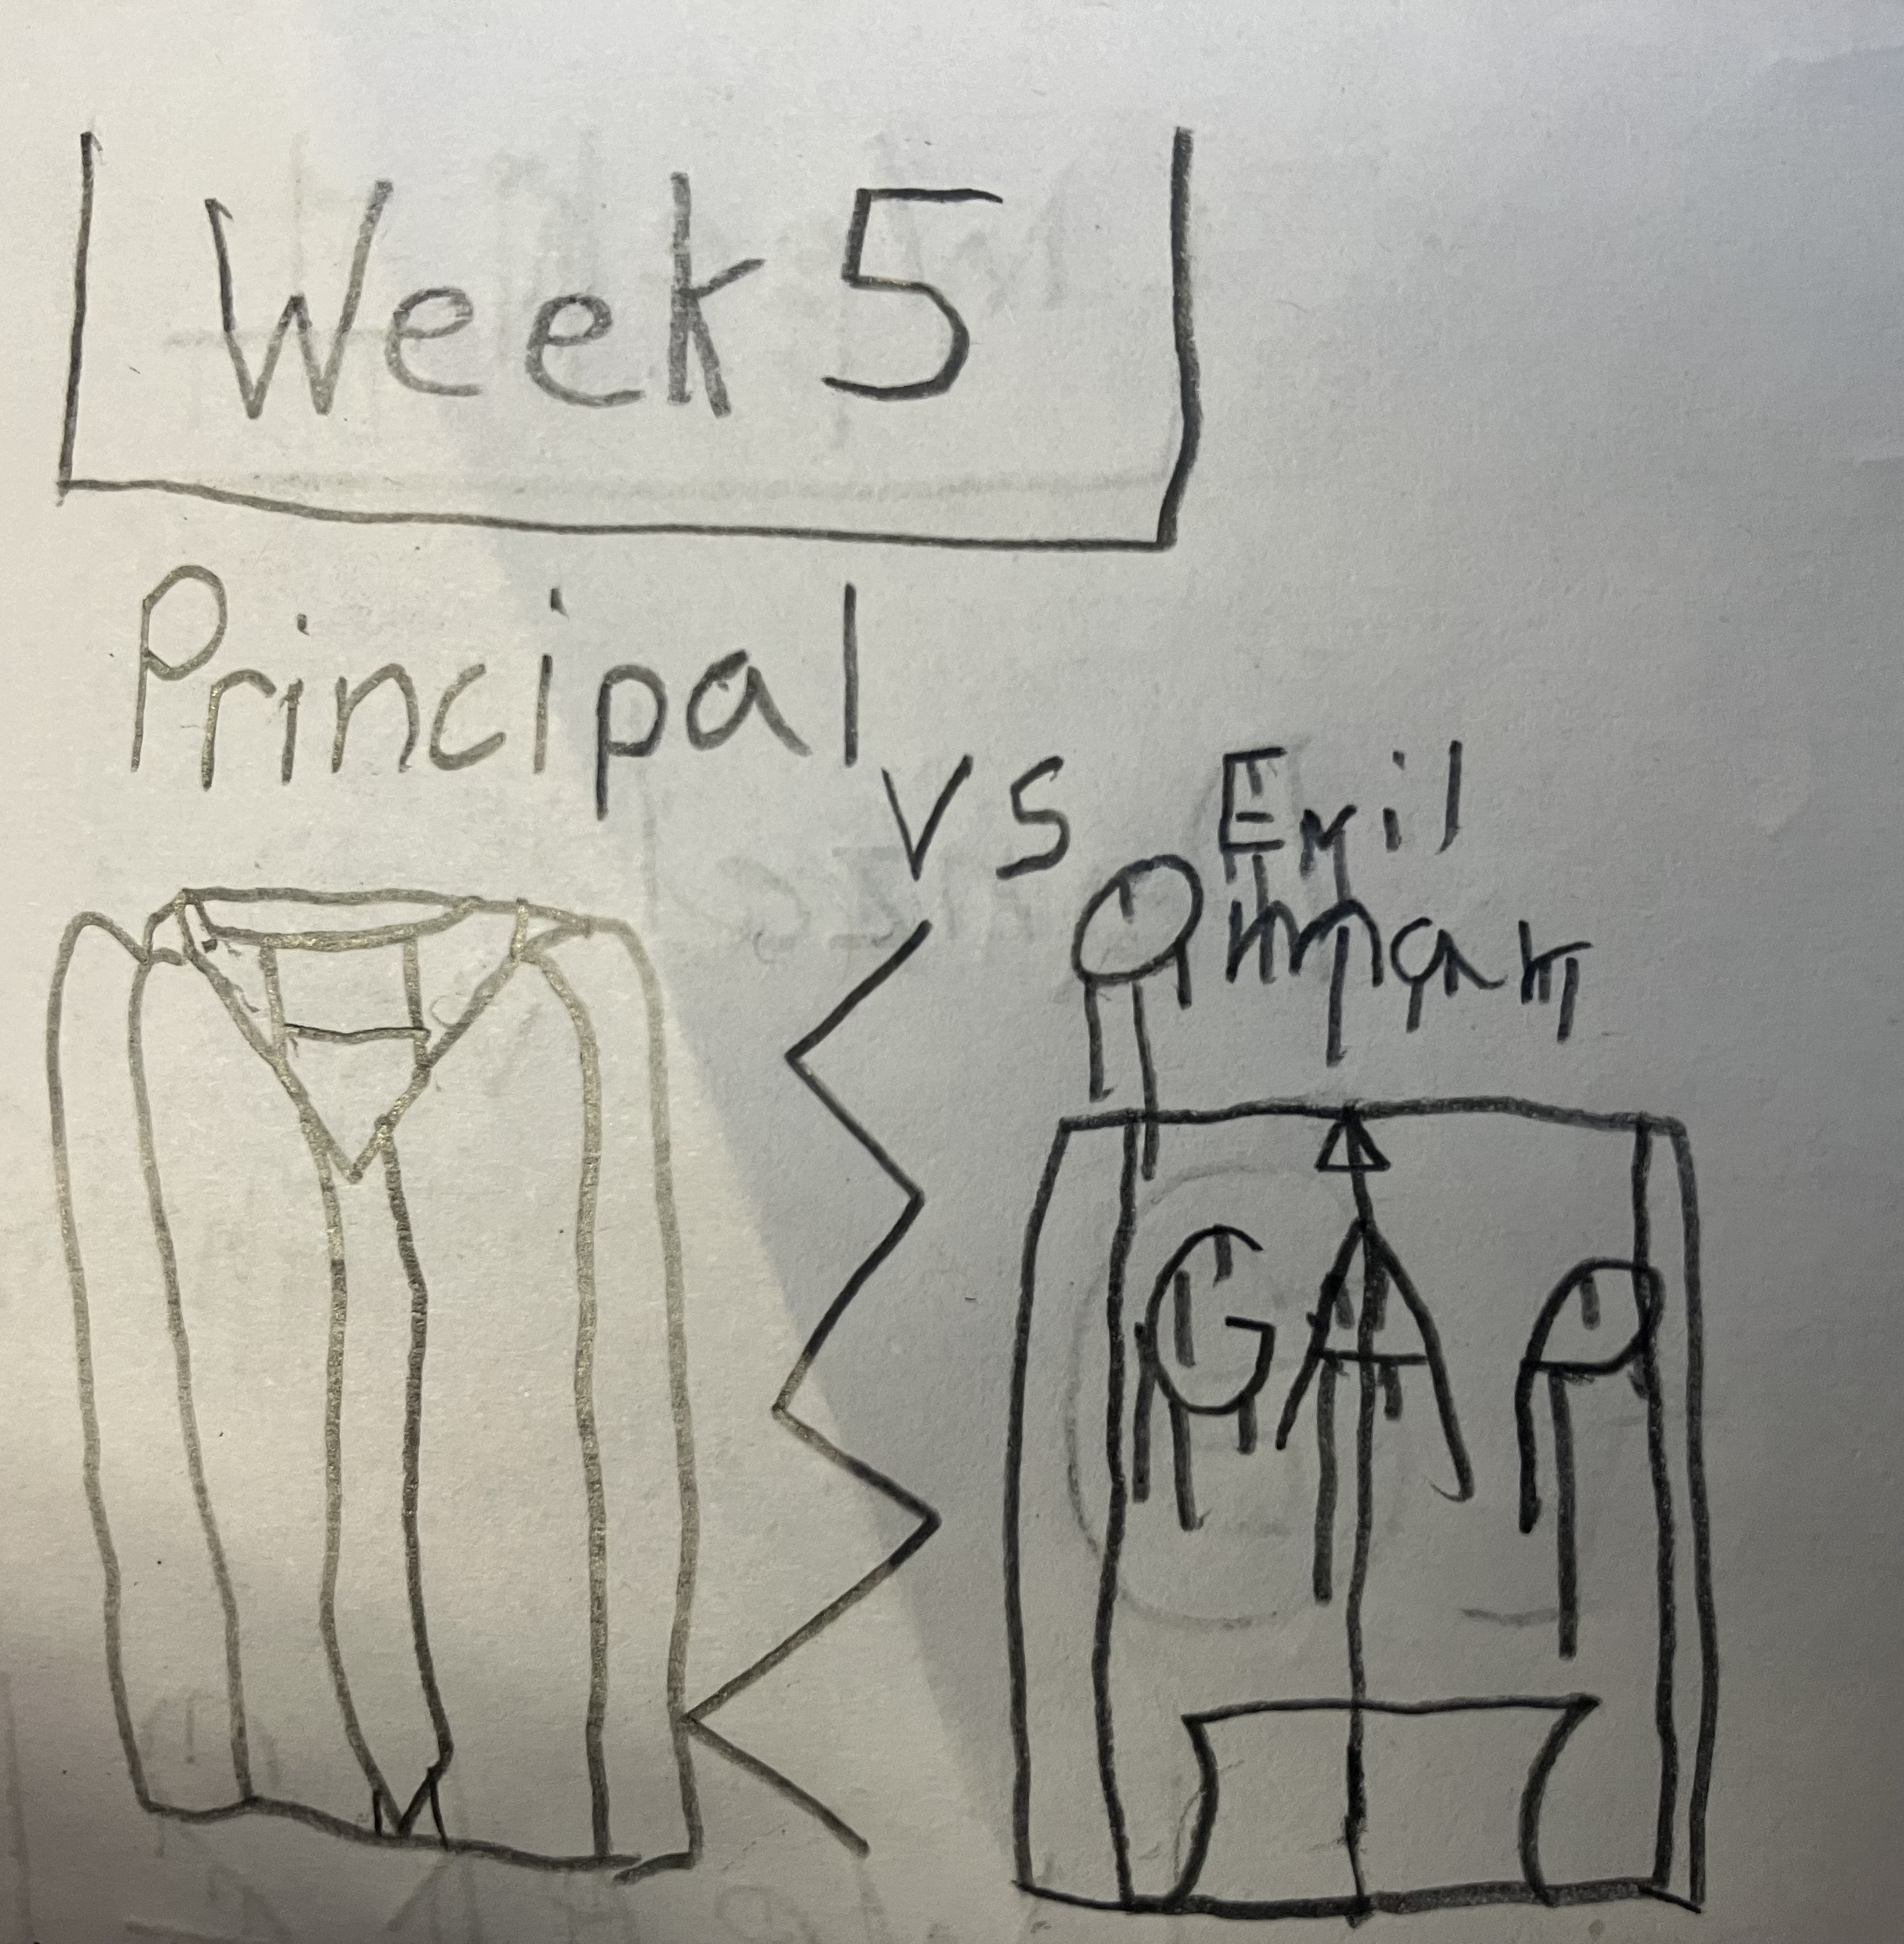 Week 5
Principal
vs
Evil
GAP